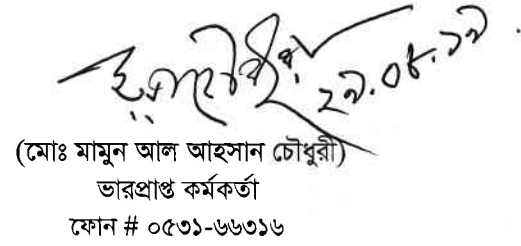 ২৯.০৮.১৯
(মোঃ মামুন আল আহসান চৌধুরী)
ভারপ্রাপ্ত কর্মকর্তা
ফোন # ০৫৩১-৬৬৩১৬